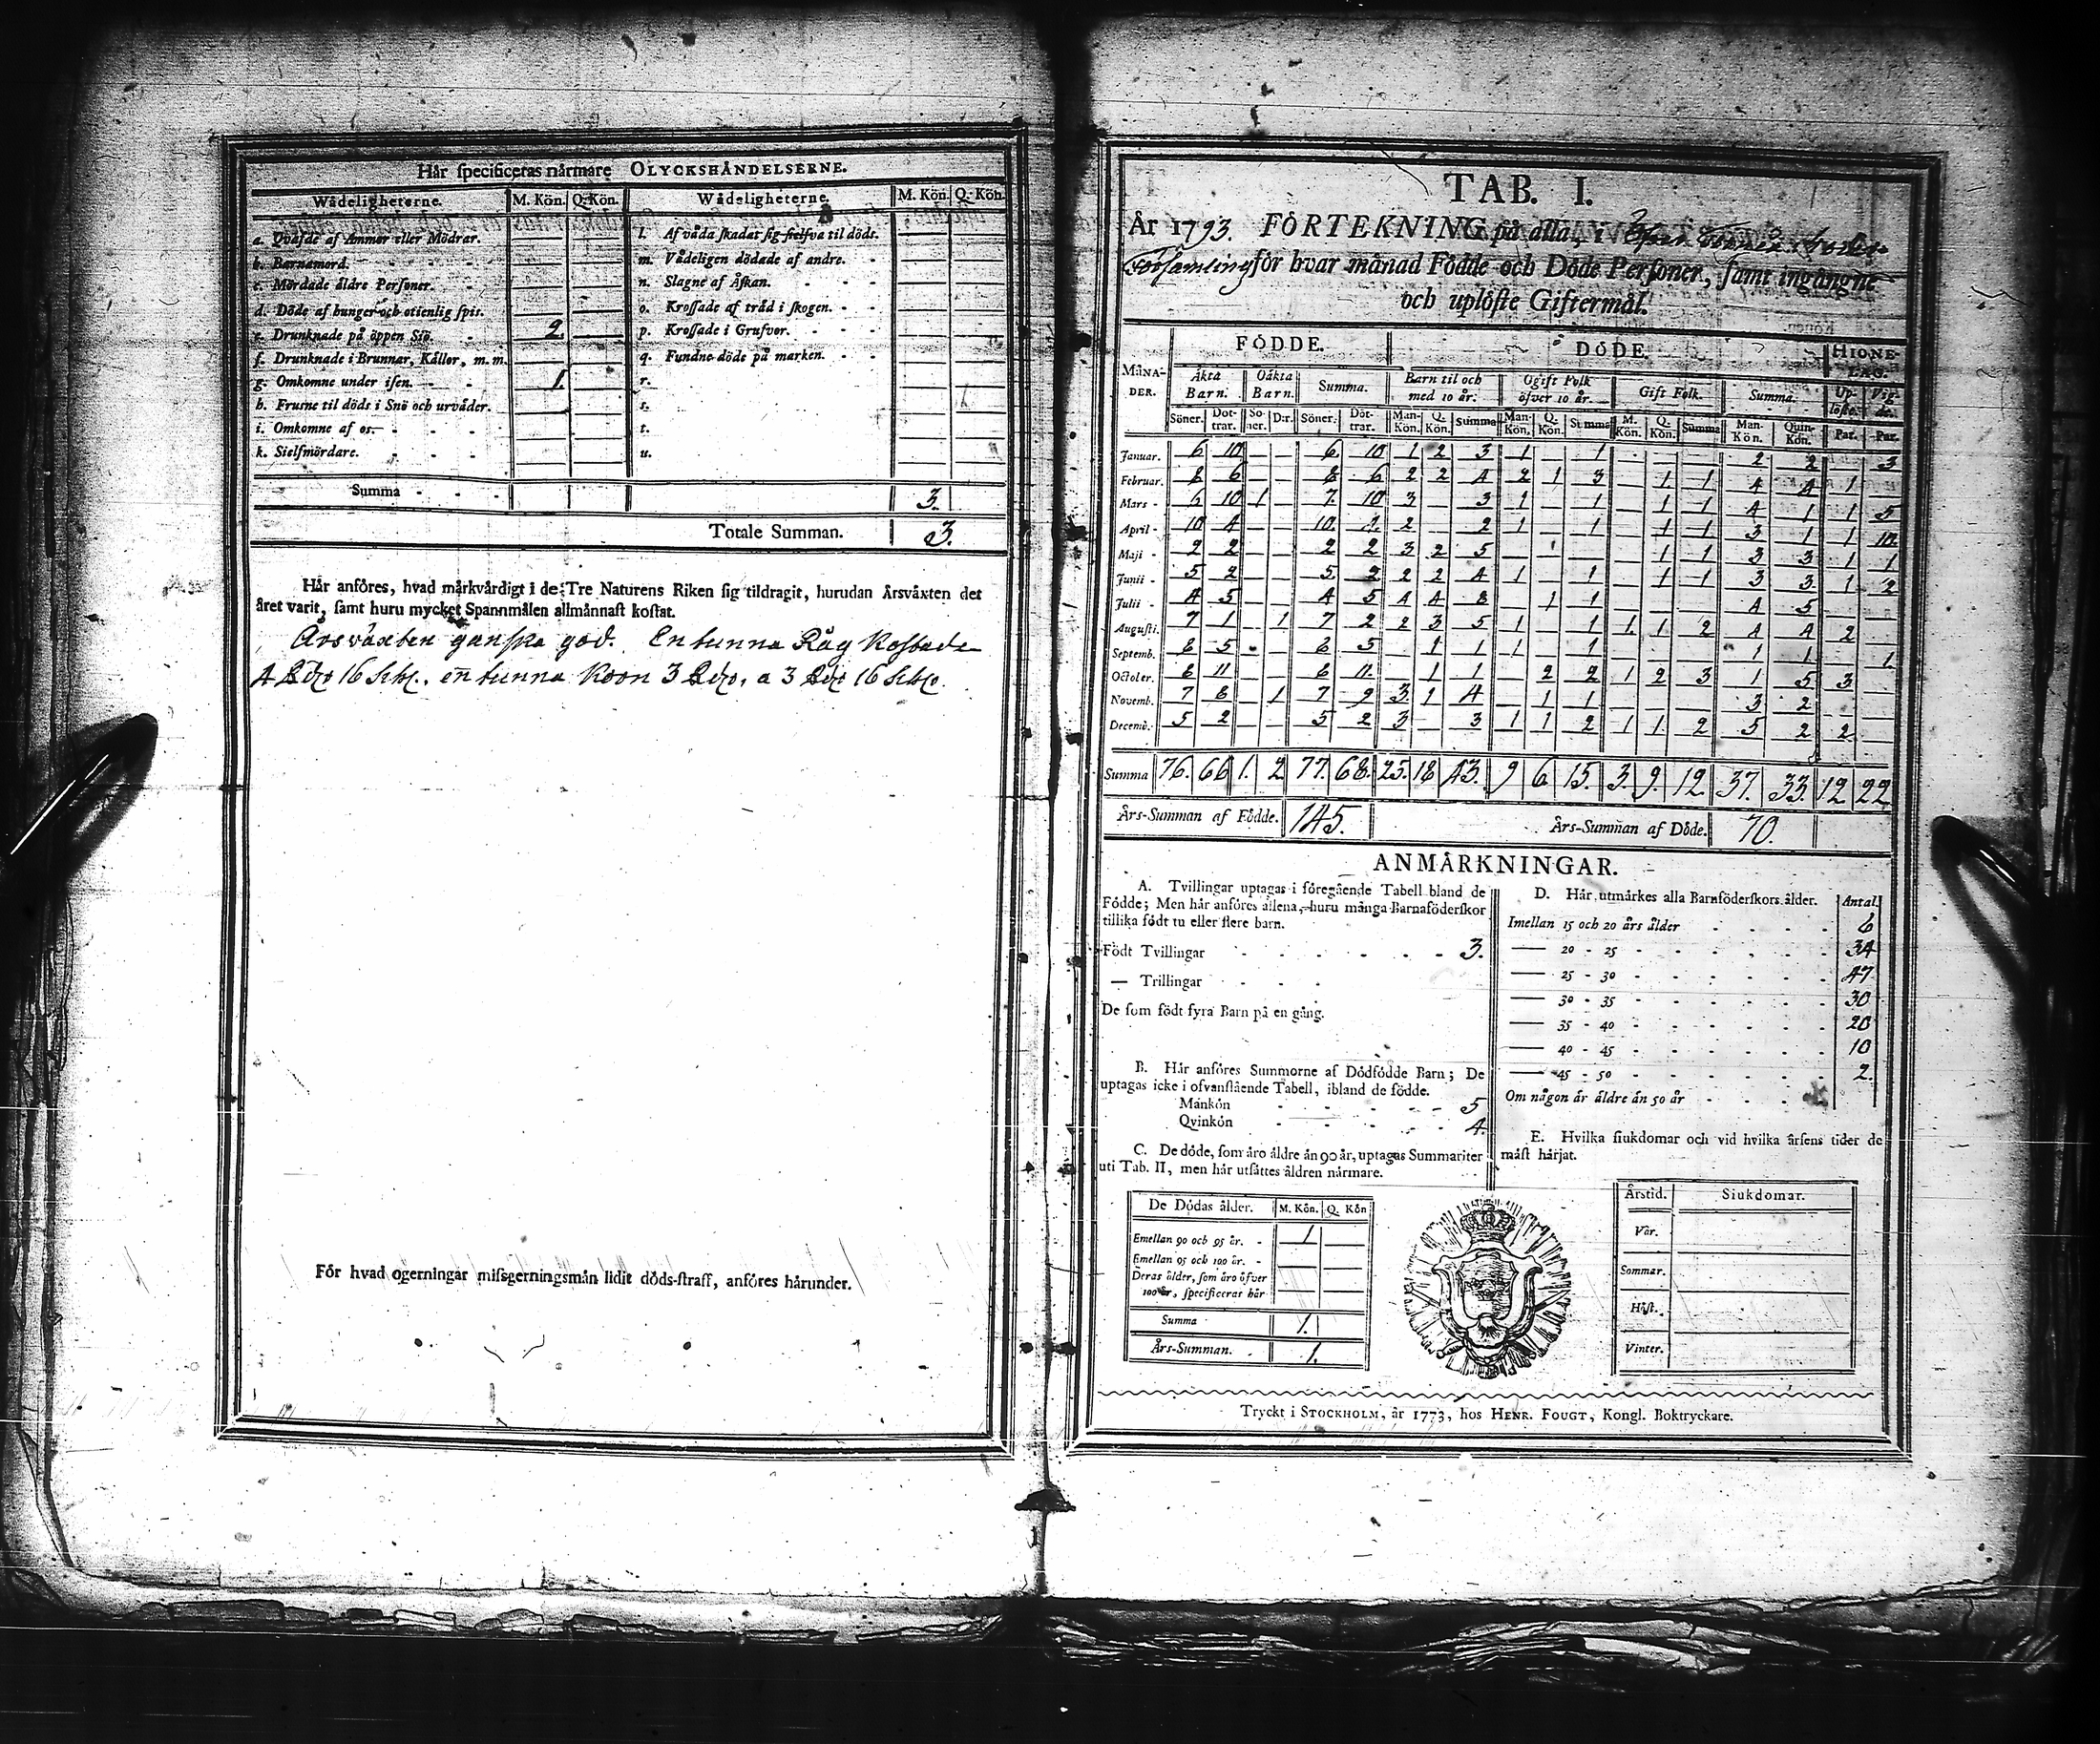 Här specificeras närmare OLYCKSHÄNDELSERNE.
Wådeligheterne. M. Kön. Q. Kön. Wådeligheterne. M. Kön. Q. Kön.
a. Qväfde af Ammor eller Mödrar. l. Af våda skadat sig sielfva til döds.
b. Barnamord. m. Vådeligen dödade af andre.
c. Mördade äldre Personer. n. Slagne af Åskan.
d. Döde af hunger och otienlig spis. o. Krossade af träd i skogen.
e. Drunknade på öppen Siö. 2. p. Krossade i Grufvor.
f. Drunknade i Brunnar, Källor, m. m. q. Fundne döde på marken.
g. Omkomne under isen. 1. r.
h. Frusne til döds i Snö och urväder. s.
i. Omkomne af os. t.
k. Sielfmördare. u.
Summa 3.
Totale Summan. 3.
Här anföres, hvad märkvärdigt i de Tre Naturens Riken sig tildragit, hurudan Årsväxten det
året varit, samt huru mycket Spannmålen allmännast kostat.
Årsväxten ganska god. En tunna Råg Kostade
4 Rdr 16 sk, en tunna Korn 3 Rdr, a 3 Rdr 16 sk.
För hvad ogerningar missgerningsmän lidit döds-straff, anföres härunder.
TAB. I.
År 1793. FÖRTEKNING på alla, i
Församling för hvar månad Födde och Döde Personer, samt ingångne
och uplöste Giftermål.
MÅNA-DER. FÖDDE. DÖDE. HIONE-LAG.
Äkta Barn. Oäkta Barn. Summa. Barn til och med 10 år. Ogift Folk öfver 10 år. Gift Folk. Summa. Up-löste. Vig-de.
Söner. Döt-trar. Sö-ner. D:r. Söner. Döt-trar. Man-Kön. Q. Kön. Summa Man-Kön. Q. Kön. Summa M. Kön. Q. Kön. Summa Man-Kön. Quin-Kön. Par. Par.
Januar. 6 10 — — 6 10 1 2 3 1 — 1 — — — 2 2 — 3
Februar. 8 6 — — 8 6 2 2 4 2 1 3 — 1 1 4 4 1 —
Mars 6 10 1 — 7. 10 3 — 3 1 — 1 — 1 1 4 1 1 5
April 10 4 — — 10. 4. 2 — 2 1 — 1 — 1 1 3 1 1 10
Maji 2 2 — — 2 2 3 2 5 — — — — 1 1 3 3 1 1
Junii 5 2 — — 5. 2 2 2 4 1 — 1 — 1 1 3 3. 1 2
Julii 4 5 — — 4 5 4 4 8 — 1 1 — — — 4 5 — —
Augusti. 7 1 — 1 7 2 2 3 5 1 — 1 1. 1 2 4 4 2 —
Septemb. 6 5 — — 6 5 — 1 1 1 — 1 — — — 1 1 — 1
October. 6 11 — — 6 11. — 1 1 — 2 2 1 2 3 1 5 3 —
Novemb. 7 8 — 1 7 9 3. 1 4 — 1 1 — — — 3 2 — —
Decemb. 5 2 — — 5 2 3 — 3 1 1 2 1 1. 2 5 2 2 —
Summa 76. 66 1. 2 77. 68. 25. 18 43. 9 6 15. 3. 9. 12. 37. 33. 12 22
Års-Summan af Födde. 145. Års-Summan af Döde. 70.
ANMÄRKNINGAR.
A. Tvillingar uptagas i föregående Tabell bland de
Födde; Men här anföres allena, huru många Barnaföderskor
tillika födt tu eller flere barn.
Födt Tvillingar 3.
— Trillingar
De som födt fyra Barn på en gång.
B. Här anföres Summorne af Dödfödde Barn; De
uptagas icke i ofvanstående Tabell, ibland de födde.
Mankön 5
Qvinkön 4.
C. De döde, som äro äldre än 90 år, uptagas Summariter
uti Tab. II, men här utsättes åldren närmare.
De Dödas ålder. M. Kön. Q. Kön
Emellan 90 och 95 år. 1 —
Emellan 95 och 100 år. — —
Deras ålder, som äro öfver
100 år, specificeras här — —
Summa 1.
Års-Summan. 1.
D. Här utmärkes alla Barnföderskors ålder. Antal
Imellan 15 och 20 års ålder 6
— 20 - 25 34
— 25 - 30 47
— 30 - 35 30
— 35 - 40 20
— 40 - 45 10
— 45 - 50 2.
Om någon är äldre än 50 år
E. Hvilka siukdomar och vid hvilka årsens tider de
mäst härjat.
Årstid. Siukdomar.
Vår.
Sommar.
Höst.
Vinter.
Tryckt i STOCKHOLM, år 1773, hos HENR. FOUGT, Kongl. Boktryckare.